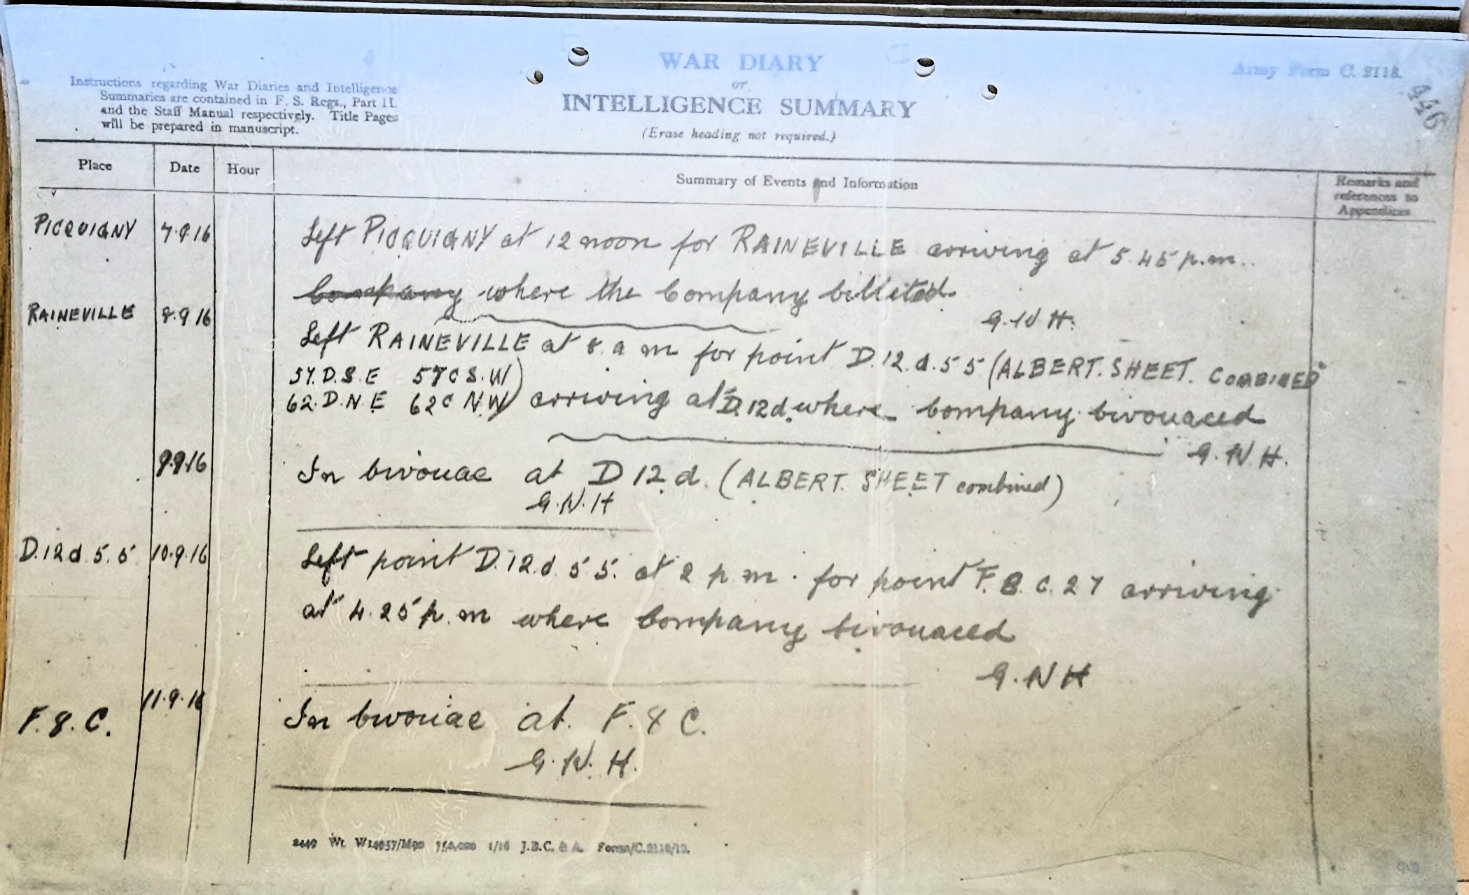 WAR DIARY
or
INTELLIGENCE SUMMARY
(Erase heading not required.)
Army Form C. 2118.
446
Instructions regarding War Diaries and Intelligence
Summaries are contained in F. S. Regs., Part II.
and the Staff Manual respectively. Title Pages
will be prepared in manuscript.
Place Date Hour Summary of Events and Information Remarks and references to Appendices
PICQUIGNY 7.9.16 Left PICQUIGNY at 12 noon for RAINEVILLE arriving at 5.45 p.m.
Company where the Company billeted
G.N.H.
RAINEVILLE 8.9.16 Left RAINEVILLE at 8. a m for point D.12.d.5 5 (ALBERT. SHEET. COMBINED
57.D.S.E 57C S.W
62.D.N.E 62C N.W) arriving at D.12d. where Company bivouaced
G.N.H.
9.9.16 In bivouac at D 12 d. (ALBERT. SHEET combined)
G.N.H
D.12d.5.5 10.9.16 Left point D.12.d.5 5. at 2 p.m. for point F. 8. C. 2 7 arriving
at 4.25 p.m where Company bivouaced
G.N H
F.8.C. 11.9.16 In bivouac at F. 8 C.
G.N.H.
1/16 J.B.C. & A. Forms/C.2118/12.